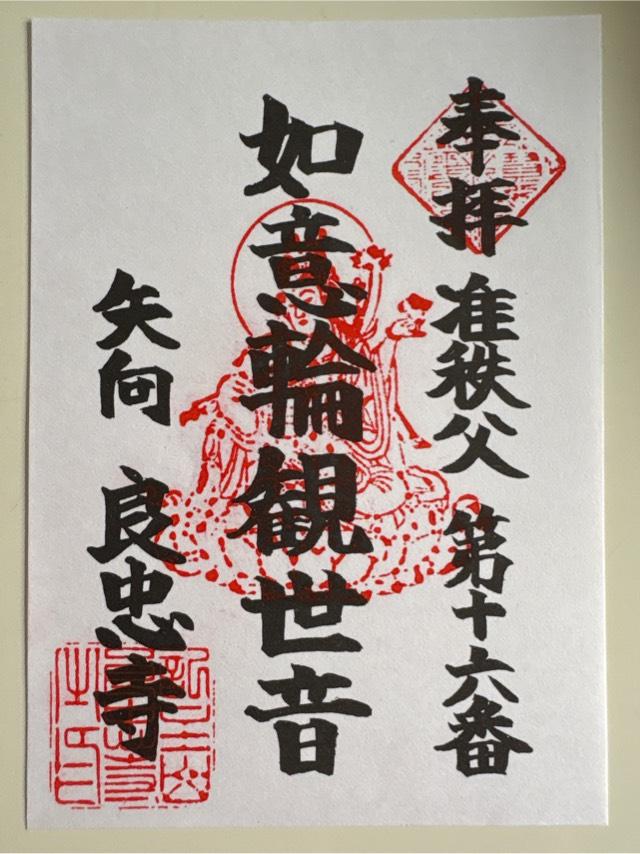 奉拝 准秩父 第十六番
如意輪観世音
矢向 良忠寺